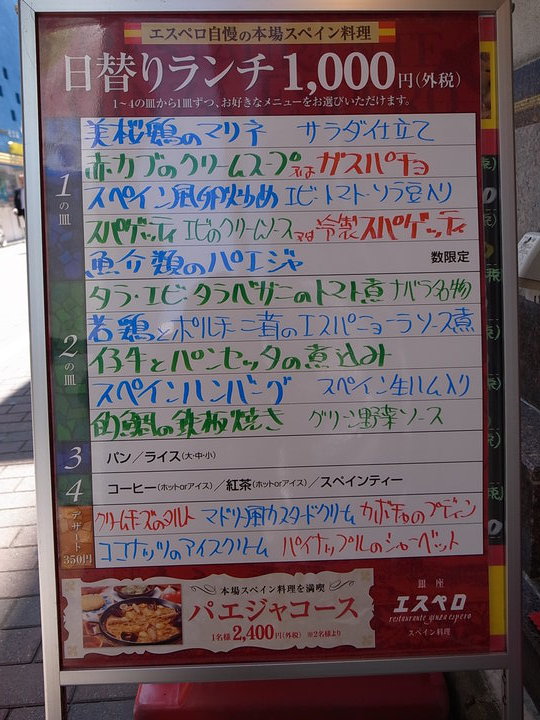 エスペロ自慢の本場スペイン料理
日替りランチ 1,000円(外税)
1~4の皿から1皿ずつ、お好きなメニューをお選びいただけます。
1の皿
美桜鶏のマリネ サラダ仕立て
赤カブのクリームスープ又はガスパチョ
スペイン風卵炒め エビ・トマト・ソラ豆入り
スパゲッティ エビのクリームソース又は冷製スパゲッティ
魚介類のパエジャ 数限定
2の皿
タラ・エビ・タラバガニのトマト煮 ナバラ名物
若鶏とポルチーニ茸のエスパニョーラソース煮
仔牛とパンセッタの煮込み
スペインハンバーグ スペイン生ハム入り
的鯛の鉄板焼き グリーン野菜ソース
3 パン/ライス(大・中・小)
4 コーヒー(ホットorアイス)/紅茶(ホットorアイス)/スペインティー
デザート 350円
クリームチーズのタルト マドリー風カスタードクリーム カボチャのプディン
ココナッツのアイスクリーム パイナップルのシャーベット
本場スペイン料理を満喫
パエジャコース
1名様 2,400円(外税) ※2名様より
銀座
エスペロ
restaurante ginza espero
スペイン料理